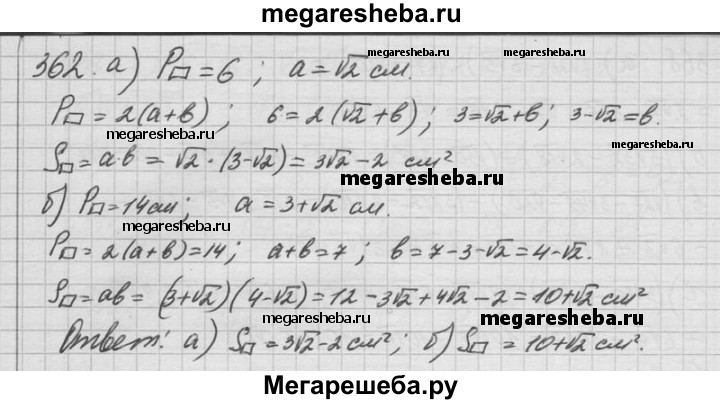 megaresheba.ru
362. а) P▱ = 6 ; a = √2 см. megaresheba.ru megaresheba.ru
P▱ = 2(a+b) ; 6 = 2(√2 + b) ; 3 = √2 + b ; 3 - √2 = b.
megaresheba.ru megaresheba.ru
S▱ = a·b = √2 · (3-√2) = 3√2 - 2 см²
megaresheba.ru
б) P▱ = 14 см ; a = 3 + √2 см.
megaresheba.ru megaresheba.ru
P▱ = 2(a+b) = 14 ; a+b = 7 ; b = 7 - 3 - √2 = 4 - √2.
S▱ = ab = (3+√2)(4-√2) = 12 - 3√2 + 4√2 - 2 = 10 + √2 см²
megaresheba.ru megaresheba.ru
Ответ: а) S▱ = 3√2 - 2 см² ; б) S▱ = 10 + √2 см².
megaresheba.ru megaresheba.ru
Мегарешеба.ру